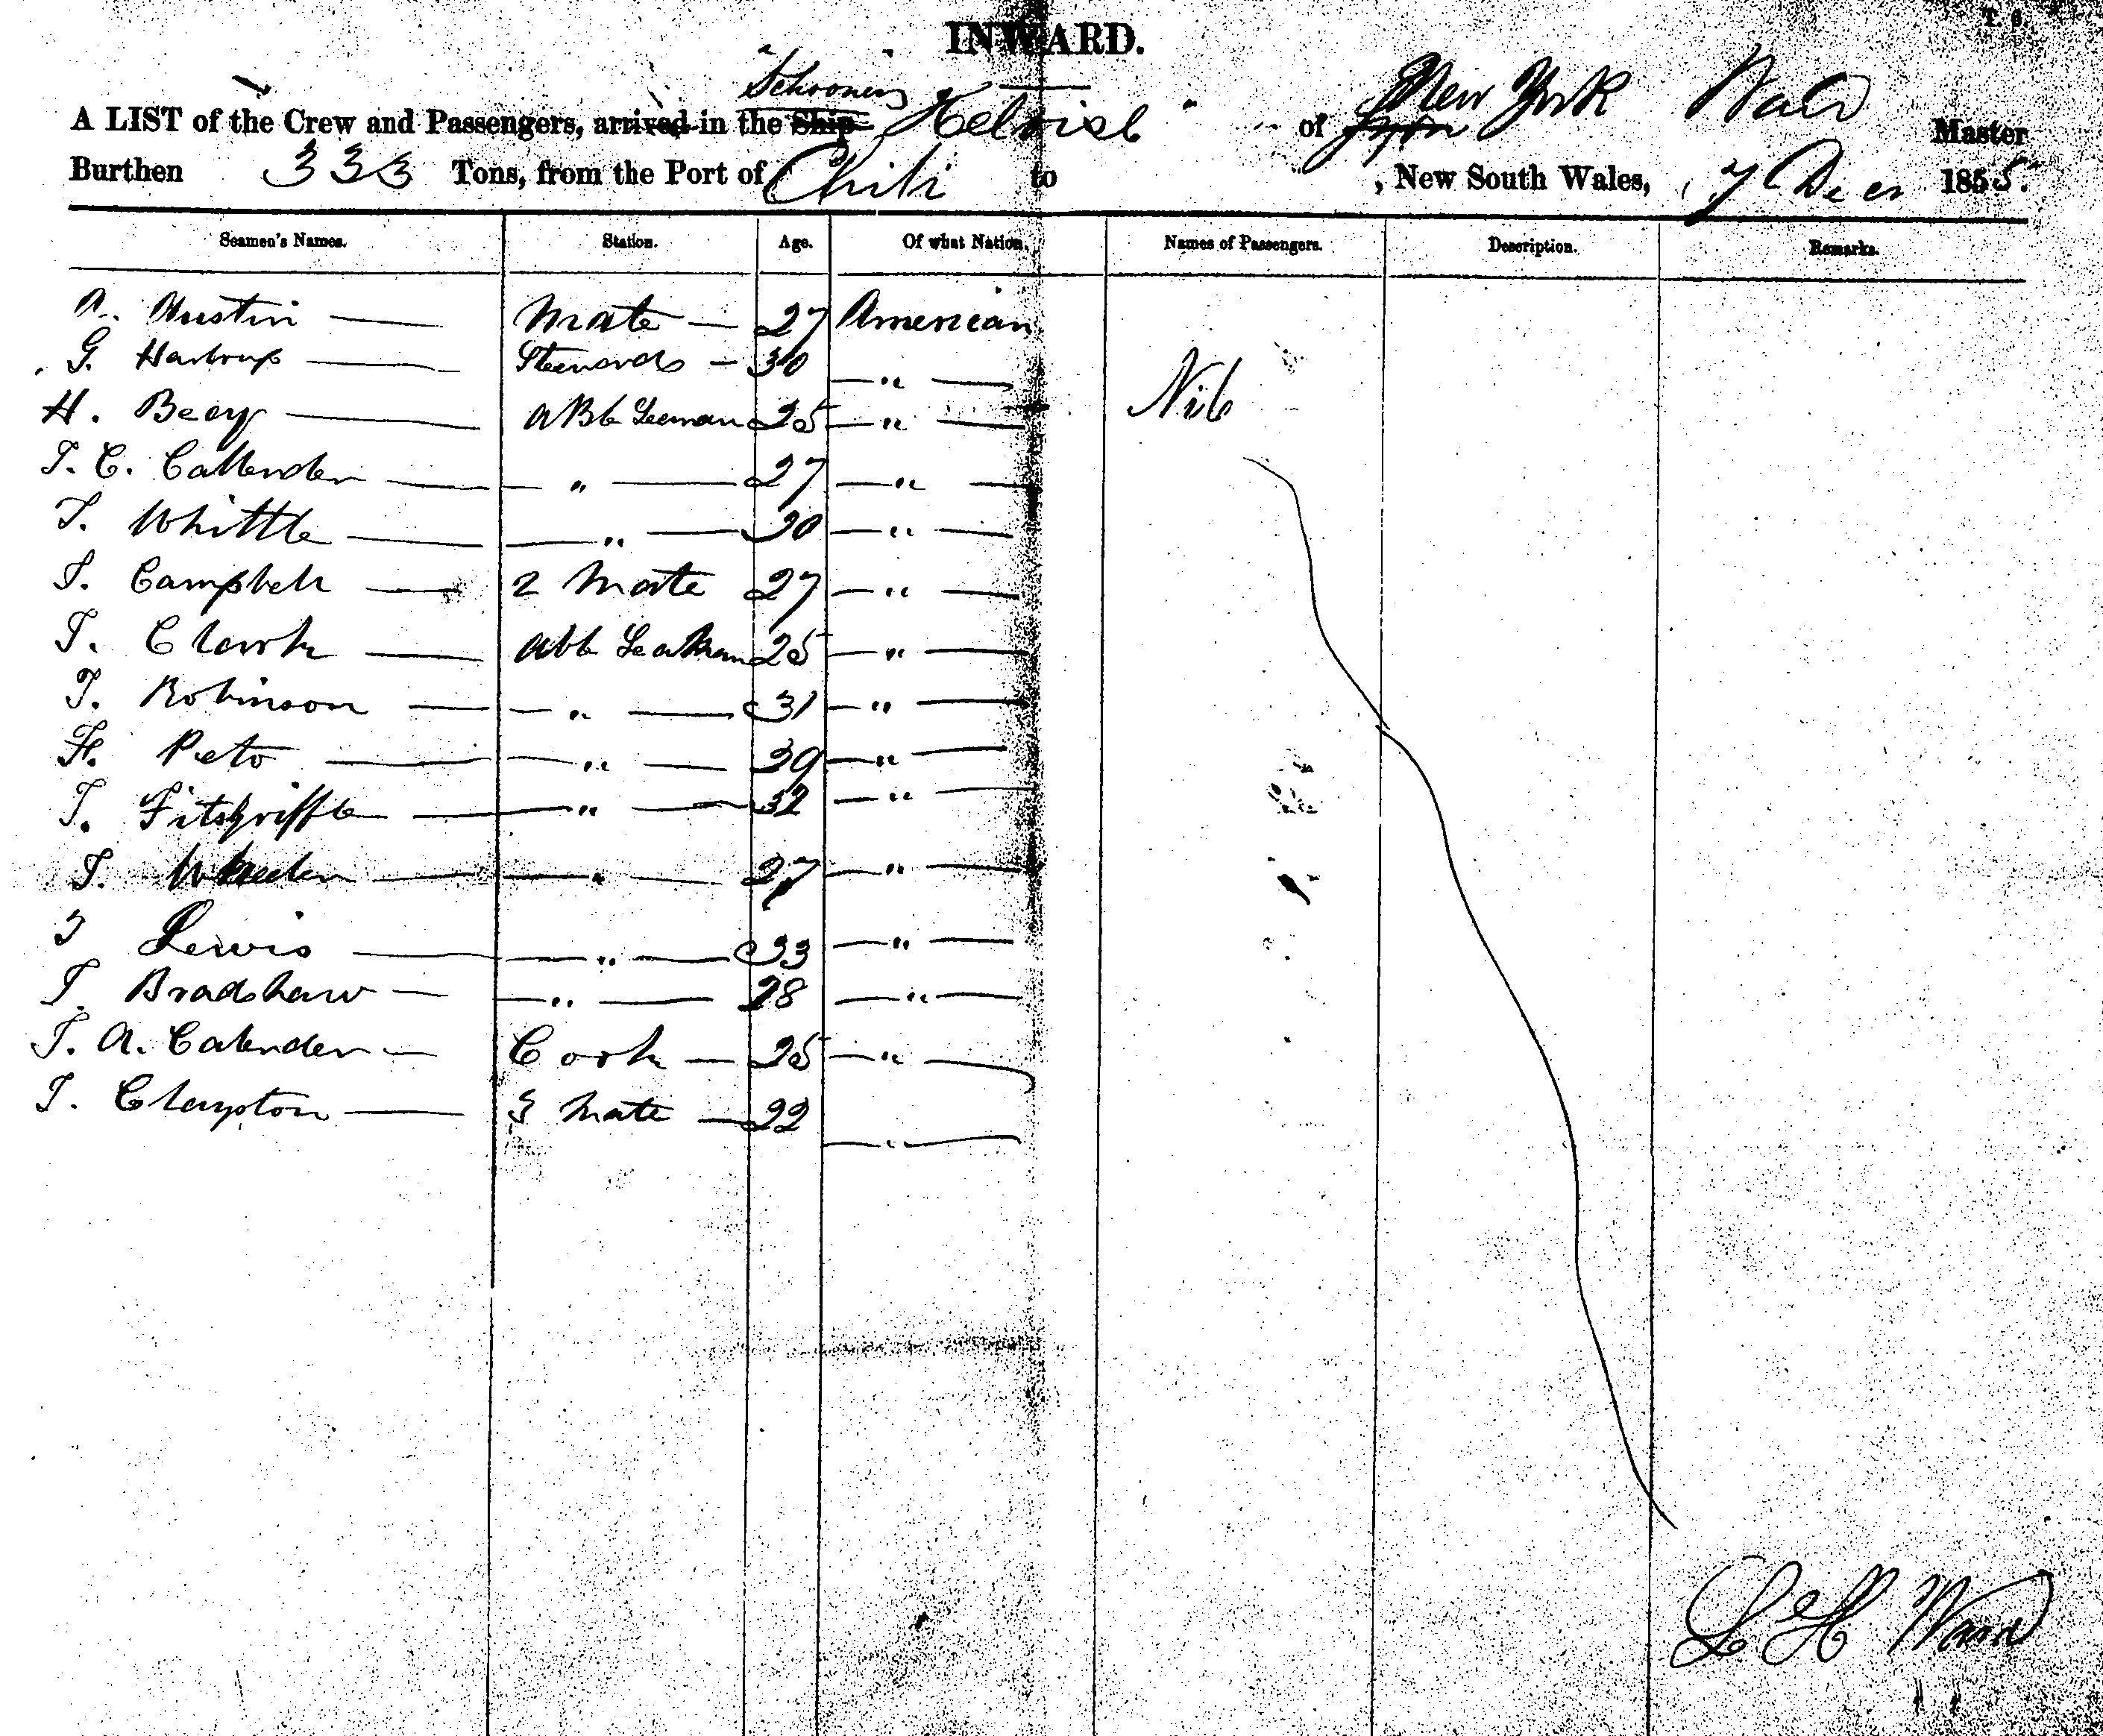 T. 6.
INWARD.
"Schooner
A LIST of the Crew and Passengers, arrived in the Ship Heloise " of New York Ward Master
Burthen 333 Tons, from the Port of Chili to , New South Wales, 7 Decr 1855.
Seamen's Names. Station. Age. Of what Nation. Names of Passengers. Description. Remarks.
A. Austin — Mate — 27 American
G. Hartrup — Stewards — 30 — " —
H. Beay — ABle Seeman 25 — " — Nil
T. C. Callender — " — 27 — " —
T. Whittle — " — 30 — " —
T. Campbell — 2 Mate 27 — " —
T. Clark — Able Seaman 25 — " —
T. Robinson — " — 31 — " —
H. Peto — " — 39 — " —
T. Fitsgriffle — " — 32 — " —
T. — " — 27 — " —
T Lewis — " — 33 — " —
T. Bradshaw — " — 28 — " —
T. A. Calender — Cook — 25 — " —
T. Clayton — 3 Mate — 22 — " —
L H Ward